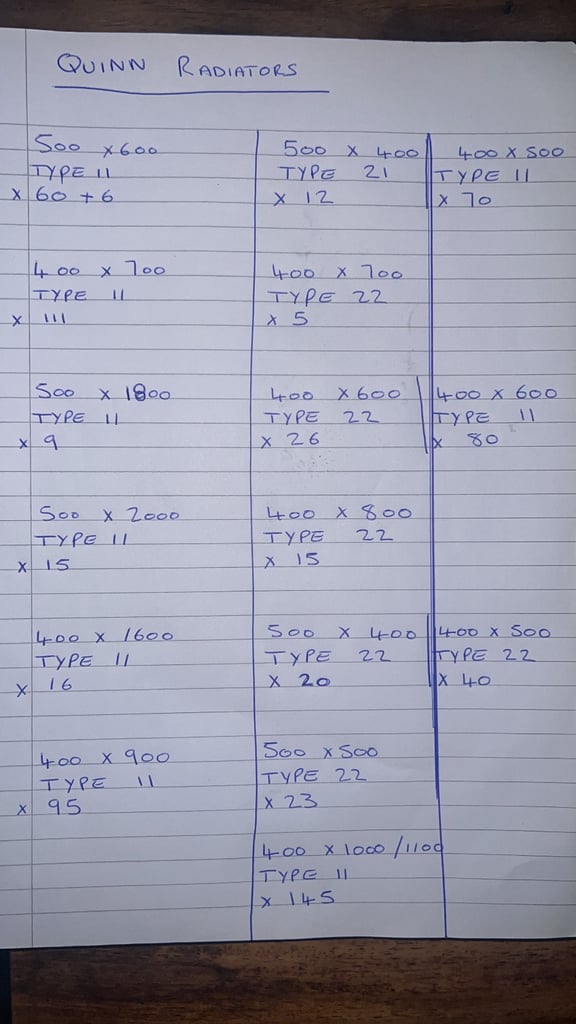 QUINN RADIATORS
500 x 600
TYPE 11
x 60 + 6
400 x 700
TYPE 11
x 111
500 x 1800
TYPE 11
x 9
500 x 2000
TYPE 11
x 15
400 x 1600
TYPE 11
x 16
400 x 900
TYPE 11
x 95
500 x 400
TYPE 21
x 12
400 x 700
TYPE 22
x 5
400 x 600
TYPE 22
x 26
400 x 800
TYPE 22
x 15
500 x 400
TYPE 22
x 20
500 x 500
TYPE 22
x 23
400 x 1000/1100
TYPE 11
x 145
400 x 500
TYPE 11
x 70
400 x 600
TYPE 11
x 80
400 x 500
TYPE 22
x 40